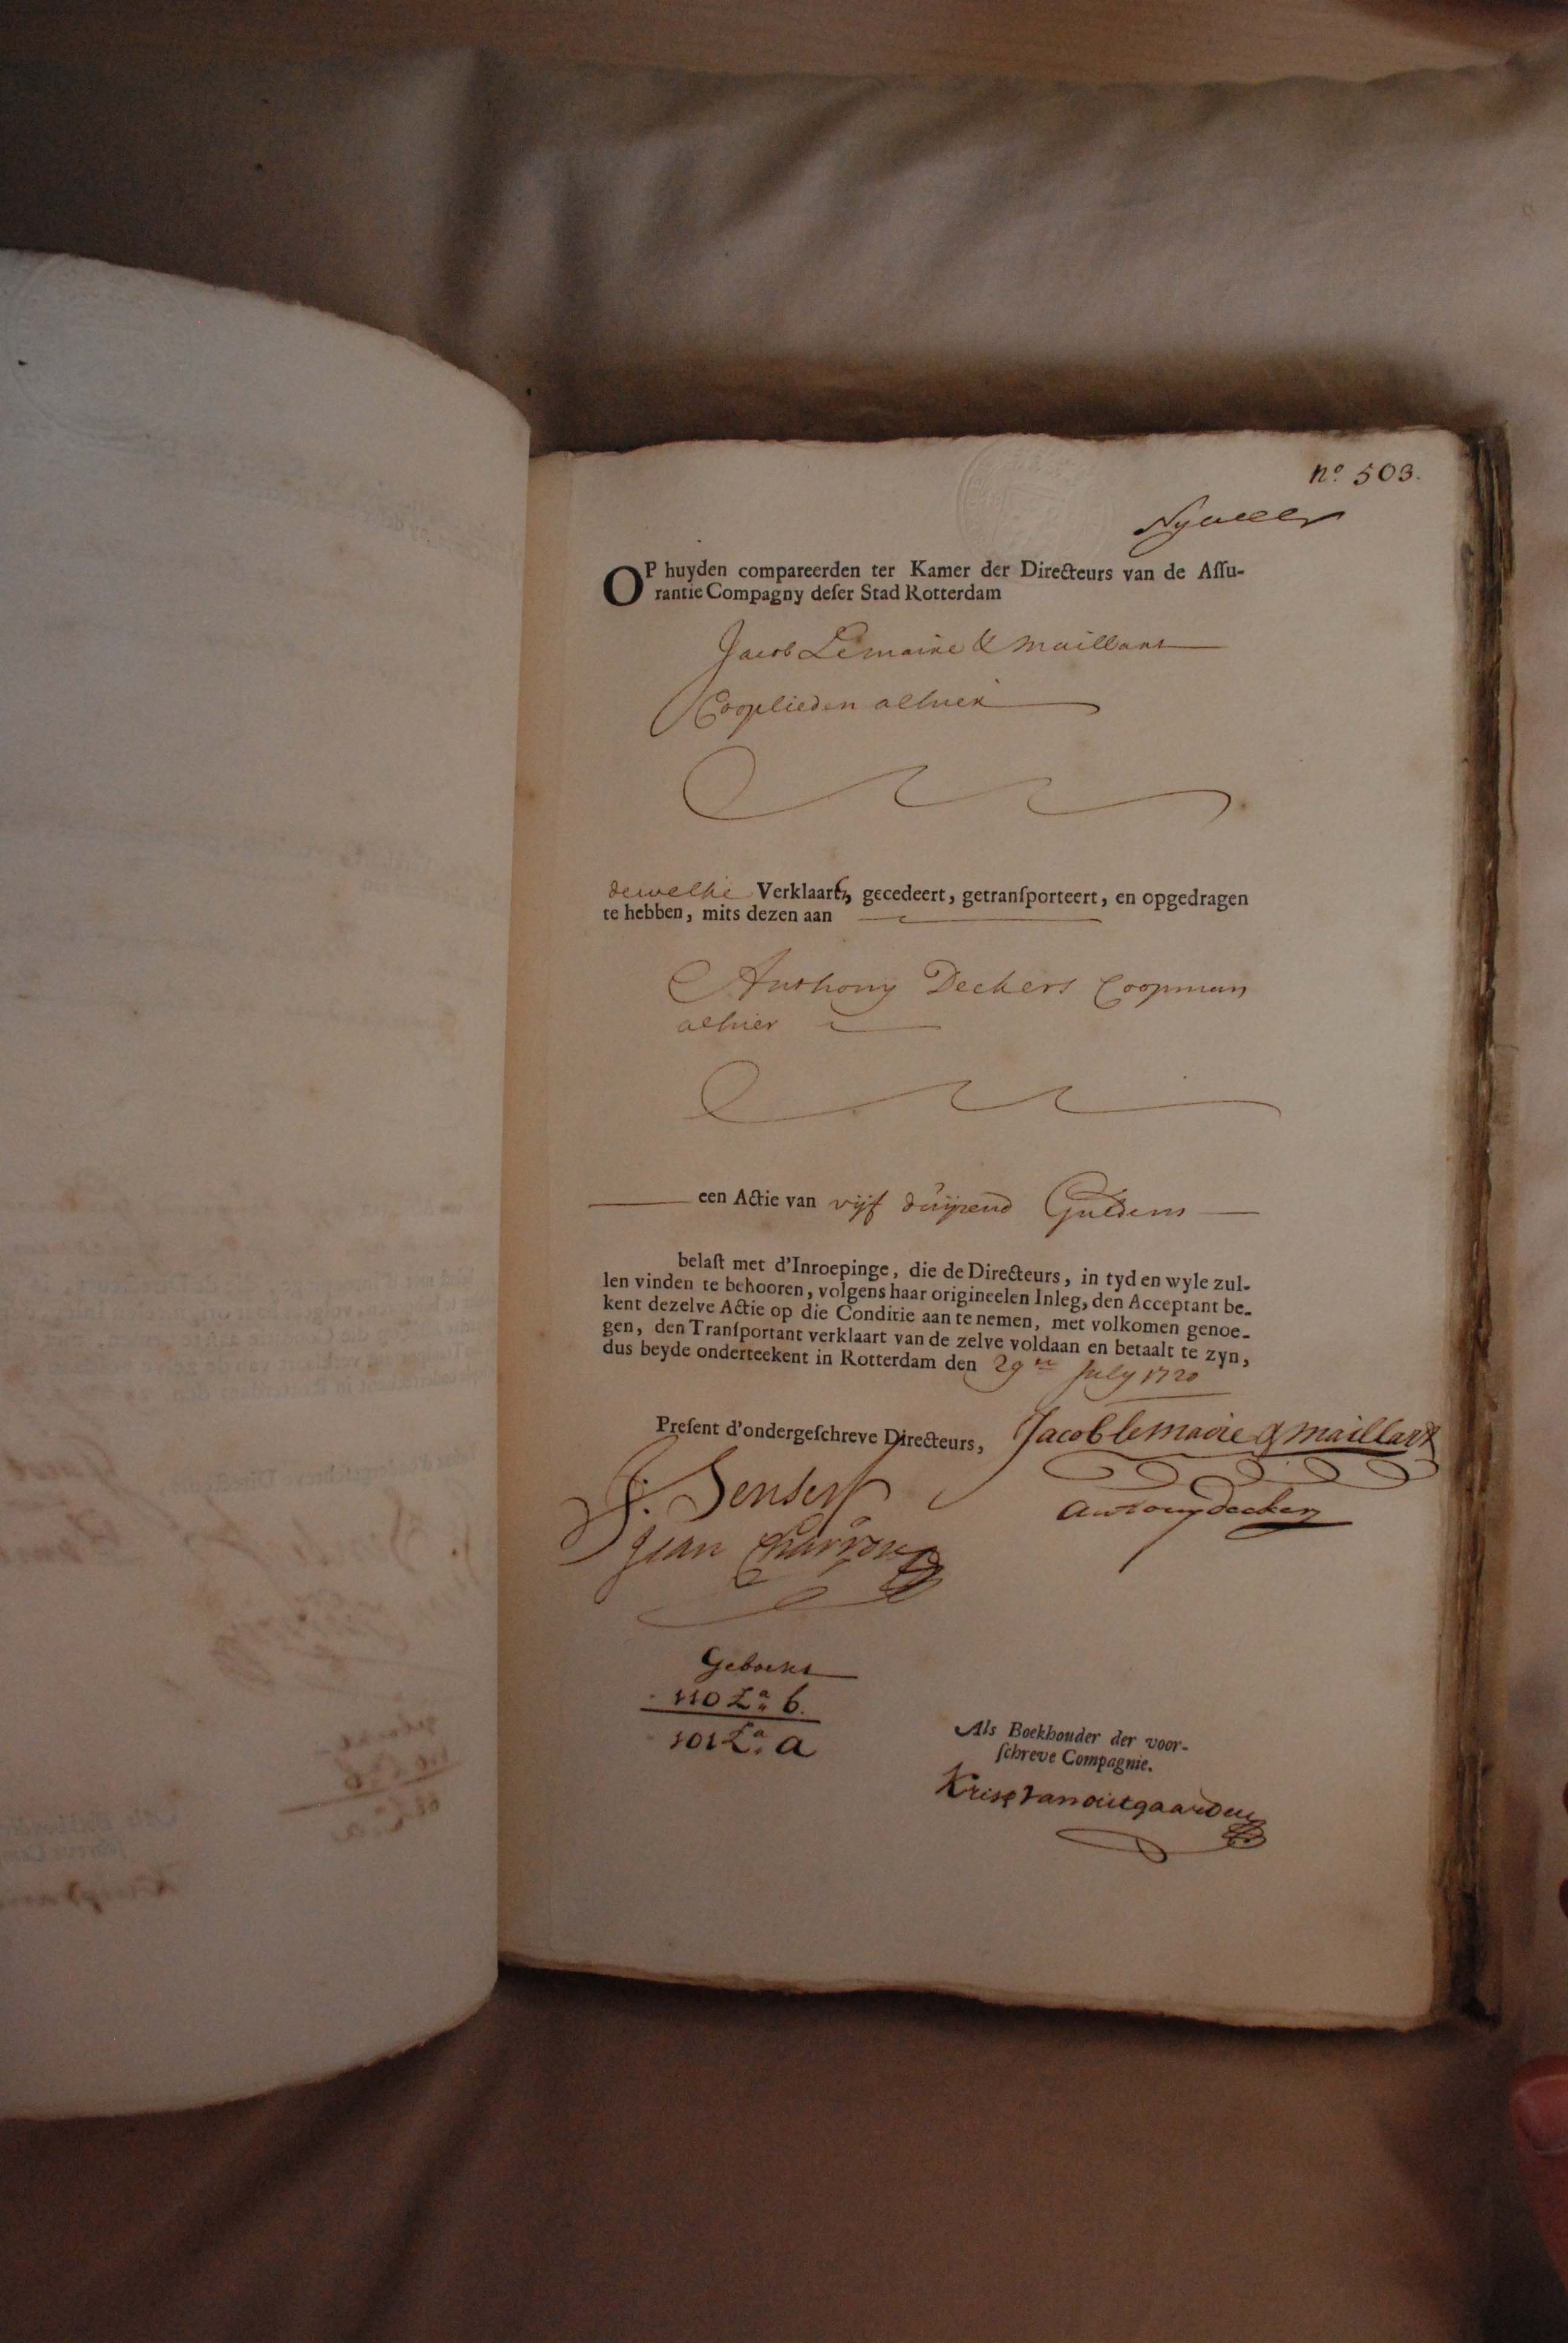 nº 503.
OP huyden compareerden ter Kamer der Directeurs van de Aſſu-
rantie Compagny deſer Stad Rotterdam
Jacob Lemaire & Maillart
Cooplieden alhier
dewelke Verklaarē, gecedeert, getranſporteert, en opgedragen
te hebben, mits dezen aan
Anthony Deckers Coopman
alhier
een Actie van vijf duijsend Guldens
belaſt met d'Inroepinge, die de Directeurs, in tyd en wyle zul-
len vinden te behooren, volgens haar origineelen Inleg, den Acceptant be-
kent dezelve Actie op die Conditie aan te nemen, met volkomen genoe-
gen, den Tranſportant verklaart van de zelve voldaan en betaalt te zyn,
dus beyde onderteekent in Rotterdam den 29en July 1720
Preſent d'ondergeſchreve Directeurs,
Jacob lemaire & maillart
J. Senserf
antony deckers
Jean Charron
Geboekt
110 La b.
101 La a
Als Boekhouder der voor-
ſchreve Compagnie.
Krisp vanoutgaarden